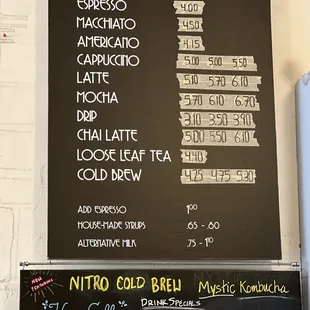 ESPRESSO 4.00
MACCHIATO 4.50
AMERICANO 4.15
CAPPUCCINO 5.00 5.00 5.50
LATTE 5.10 5.70 6.10
MOCHA 5.70 6.10 6.70
DRIP 3.10 3.50 3.90
CHAI LATTE 5.00 5.50 6.10
LOOSE LEAF TEA 4.40
COLD BREW 4.25 4.75 5.30
ADD ESPRESSO 1.00
HOUSE-MADE SYRUPS .65 - .80
ALTERNATIVE MILK .75 - 1.10
NOW FEATURING
NITRO COLD BREW
Mystic Kombucha
DRINK SPECIALS